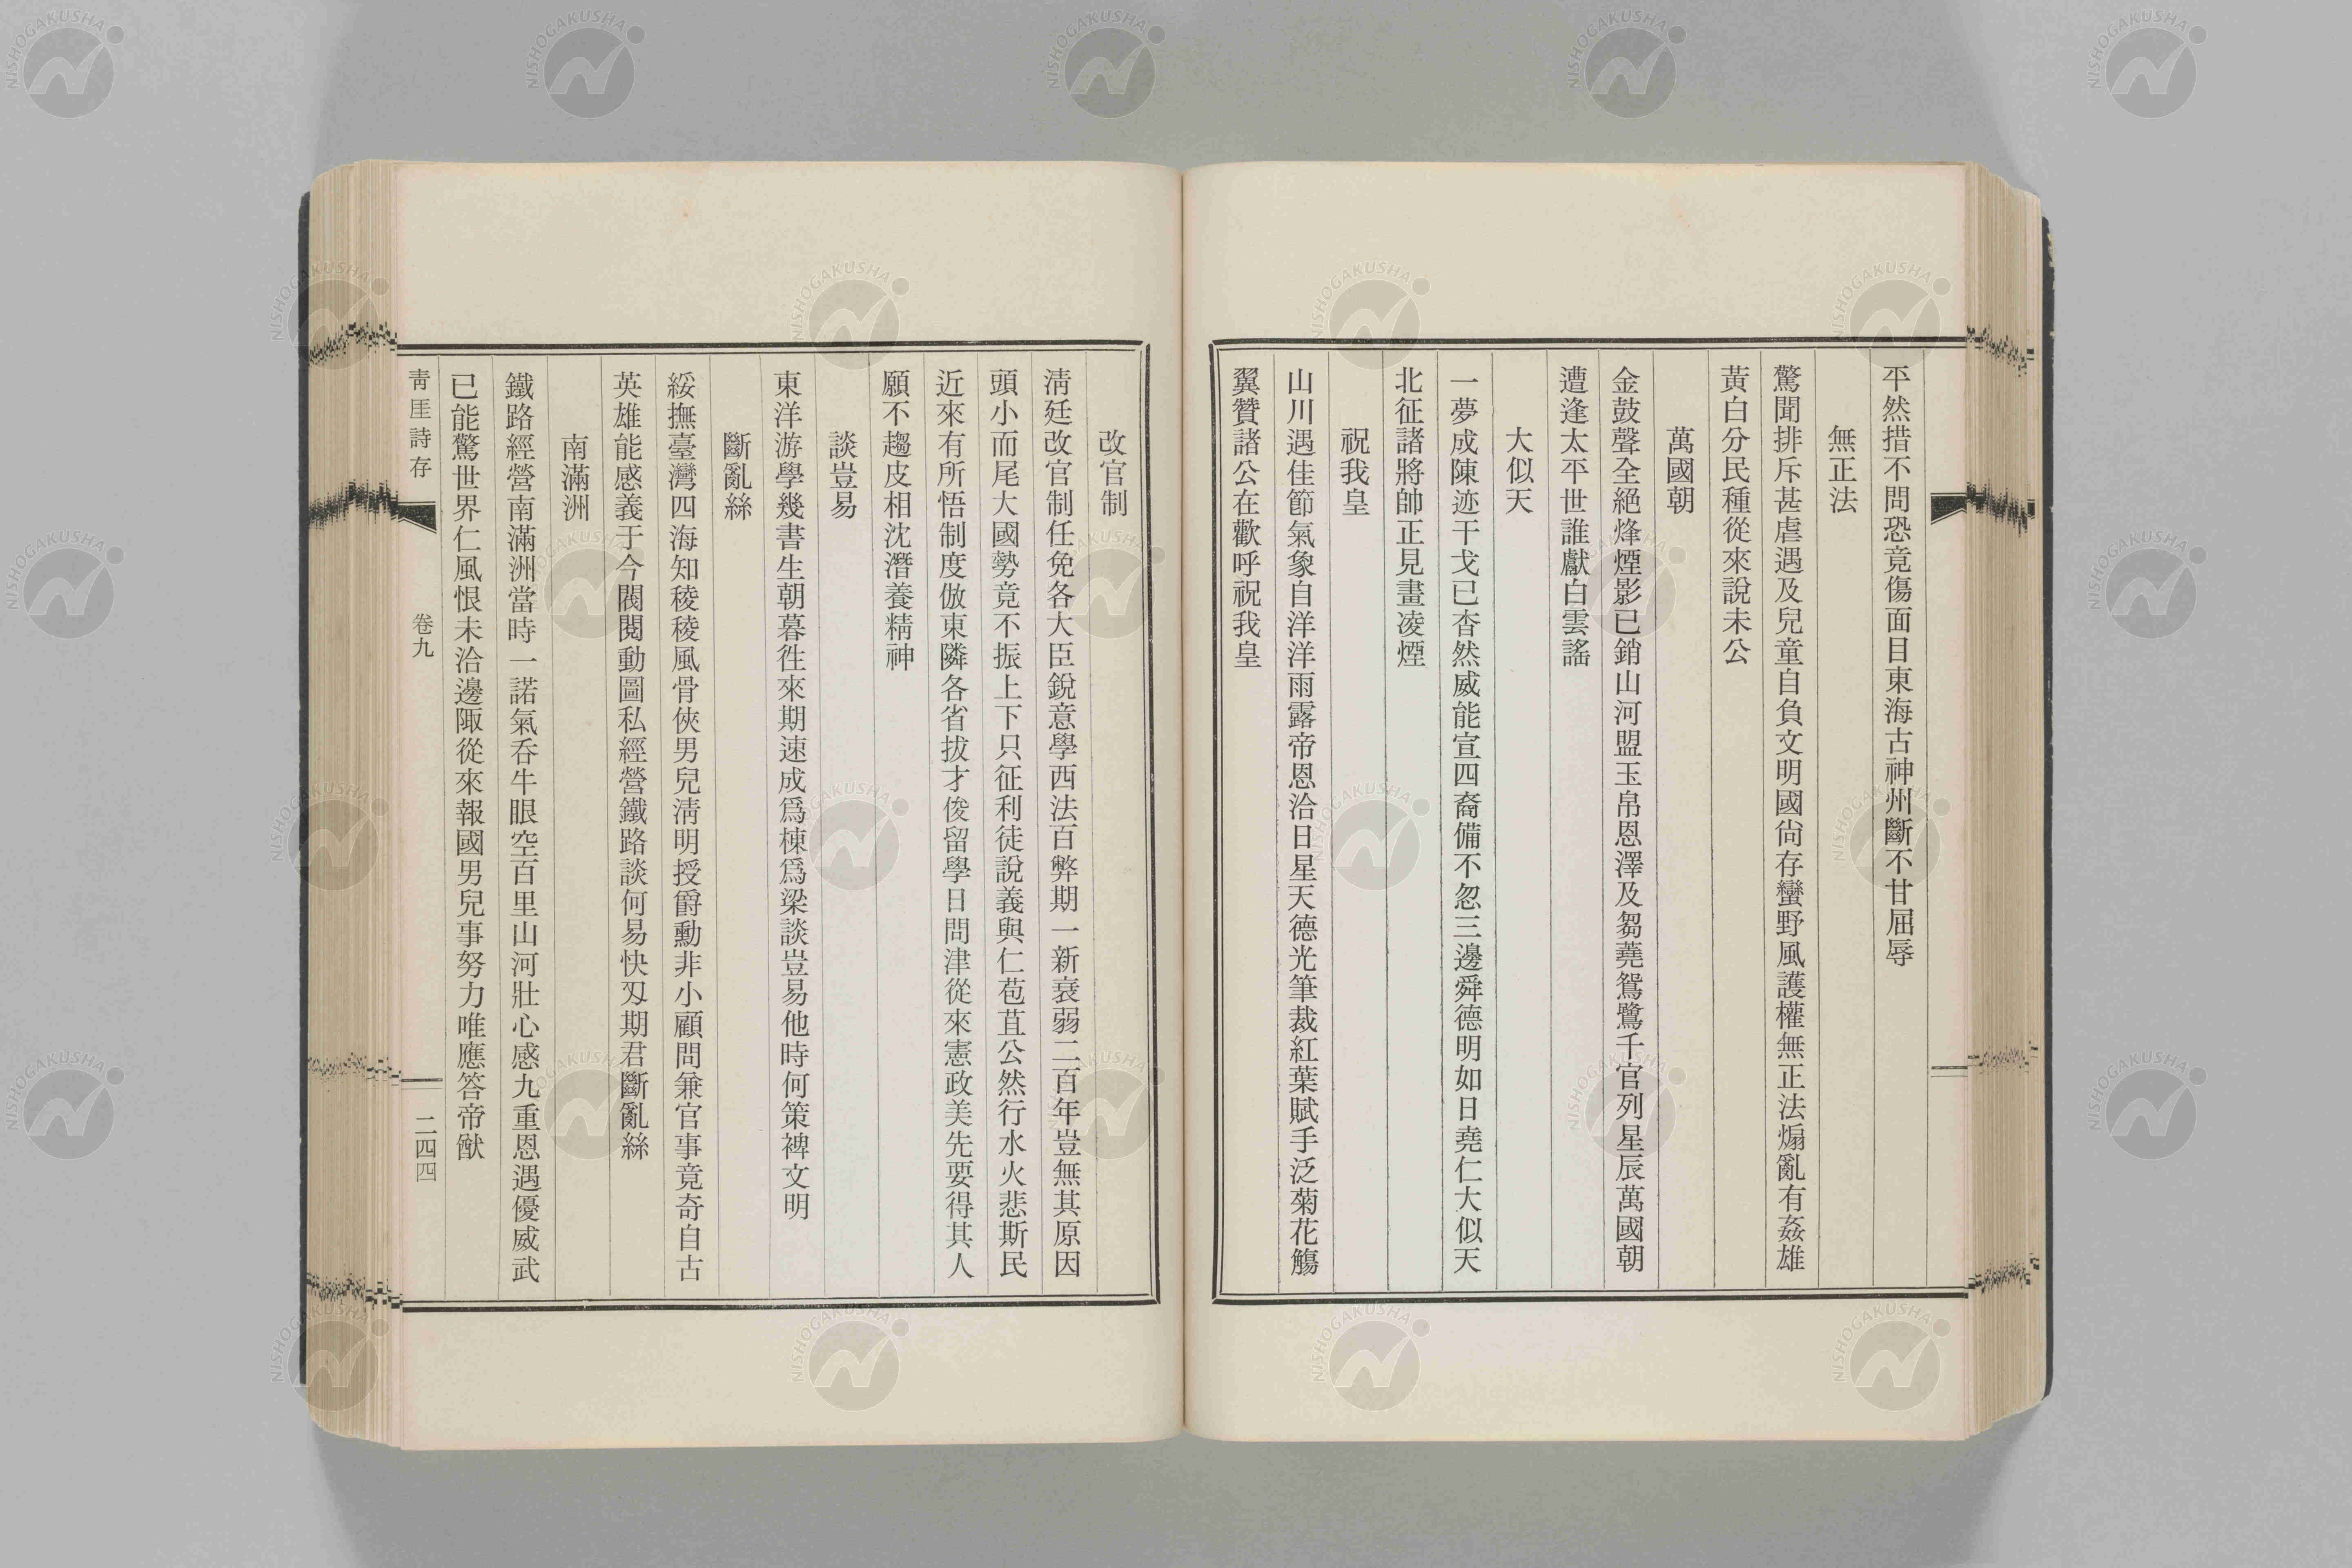 平然措不問恐竟傷面目東海古神州斷不甘屈辱
無正法
驚聞排斥甚虐遇及兒童自負文明國尙存蠻野風護權無正法煽亂有姦雄
黃白分民種從來說未公
萬國朝
金鼓聲全絕烽煙影已銷山河盟玉帛恩澤及芻蕘鴛鷺千官列星辰萬國朝
遭逢太平世誰獻白雲謠
大似天
一夢成陳迹干戈已杳然威能宣四裔備不忽三邊舜德明如日堯仁大似天
北征諸將帥正見畫凌煙
祝我皇
山川遇佳節氣象自洋洋雨露帝恩洽日星天德光筆裁紅葉賦手泛菊花觴
翼贊諸公在歡呼祝我皇
改官制
淸廷改官制任免各大臣銳意學西法百弊期一新衰弱二百年豈無其原因
頭小而尾大國勢竟不振上下只征利徒說義與仁苞苴公然行水火悲斯民
近來有所悟制度倣東隣各省拔才俊留學日問津從來憲政美先要得其人
願不趨皮相沈潛養精神
談豈易
東洋游學幾書生朝暮徃來期速成爲棟爲梁談豈易他時何策裨文明
斷亂絲
綏撫臺灣四海知稜稜風骨俠男兒淸明授爵勳非小顧問兼官事竟奇自古
英雄能感義于今閥閱動圖私經營鐵路談何易快刄期君斷亂絲
南滿洲
鐵路經營南滿洲當時一諾氣呑牛眼空百里山河壯心感九重恩遇優威武
已能驚世界仁風恨未洽邊陬從來報國男兒事努力唯應答帝猷
靑厓詩存
卷九
二四四
NISHOGAKUSHA